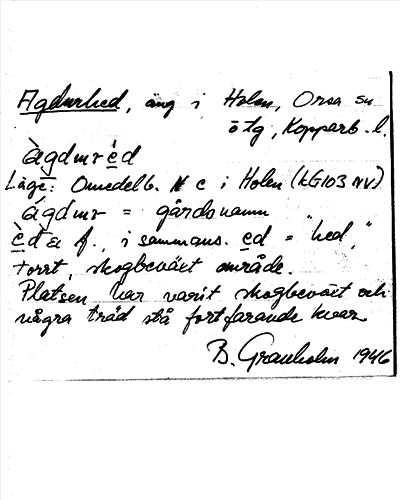 Agdurhed, äng i Holen, Orsa sn
ötg, Kopparb. l.
àgdmr èd
Läge: Omedelb. N e i Holen (LG103 NV)
ágdmr = gårdsnamn
èd a f., i sammans. ed = "hed,"
torrt, skogbeväxt område.
Platsen har varit skogbeväxt och
några träd stå fortfarande kvar
B. Granholm 1946